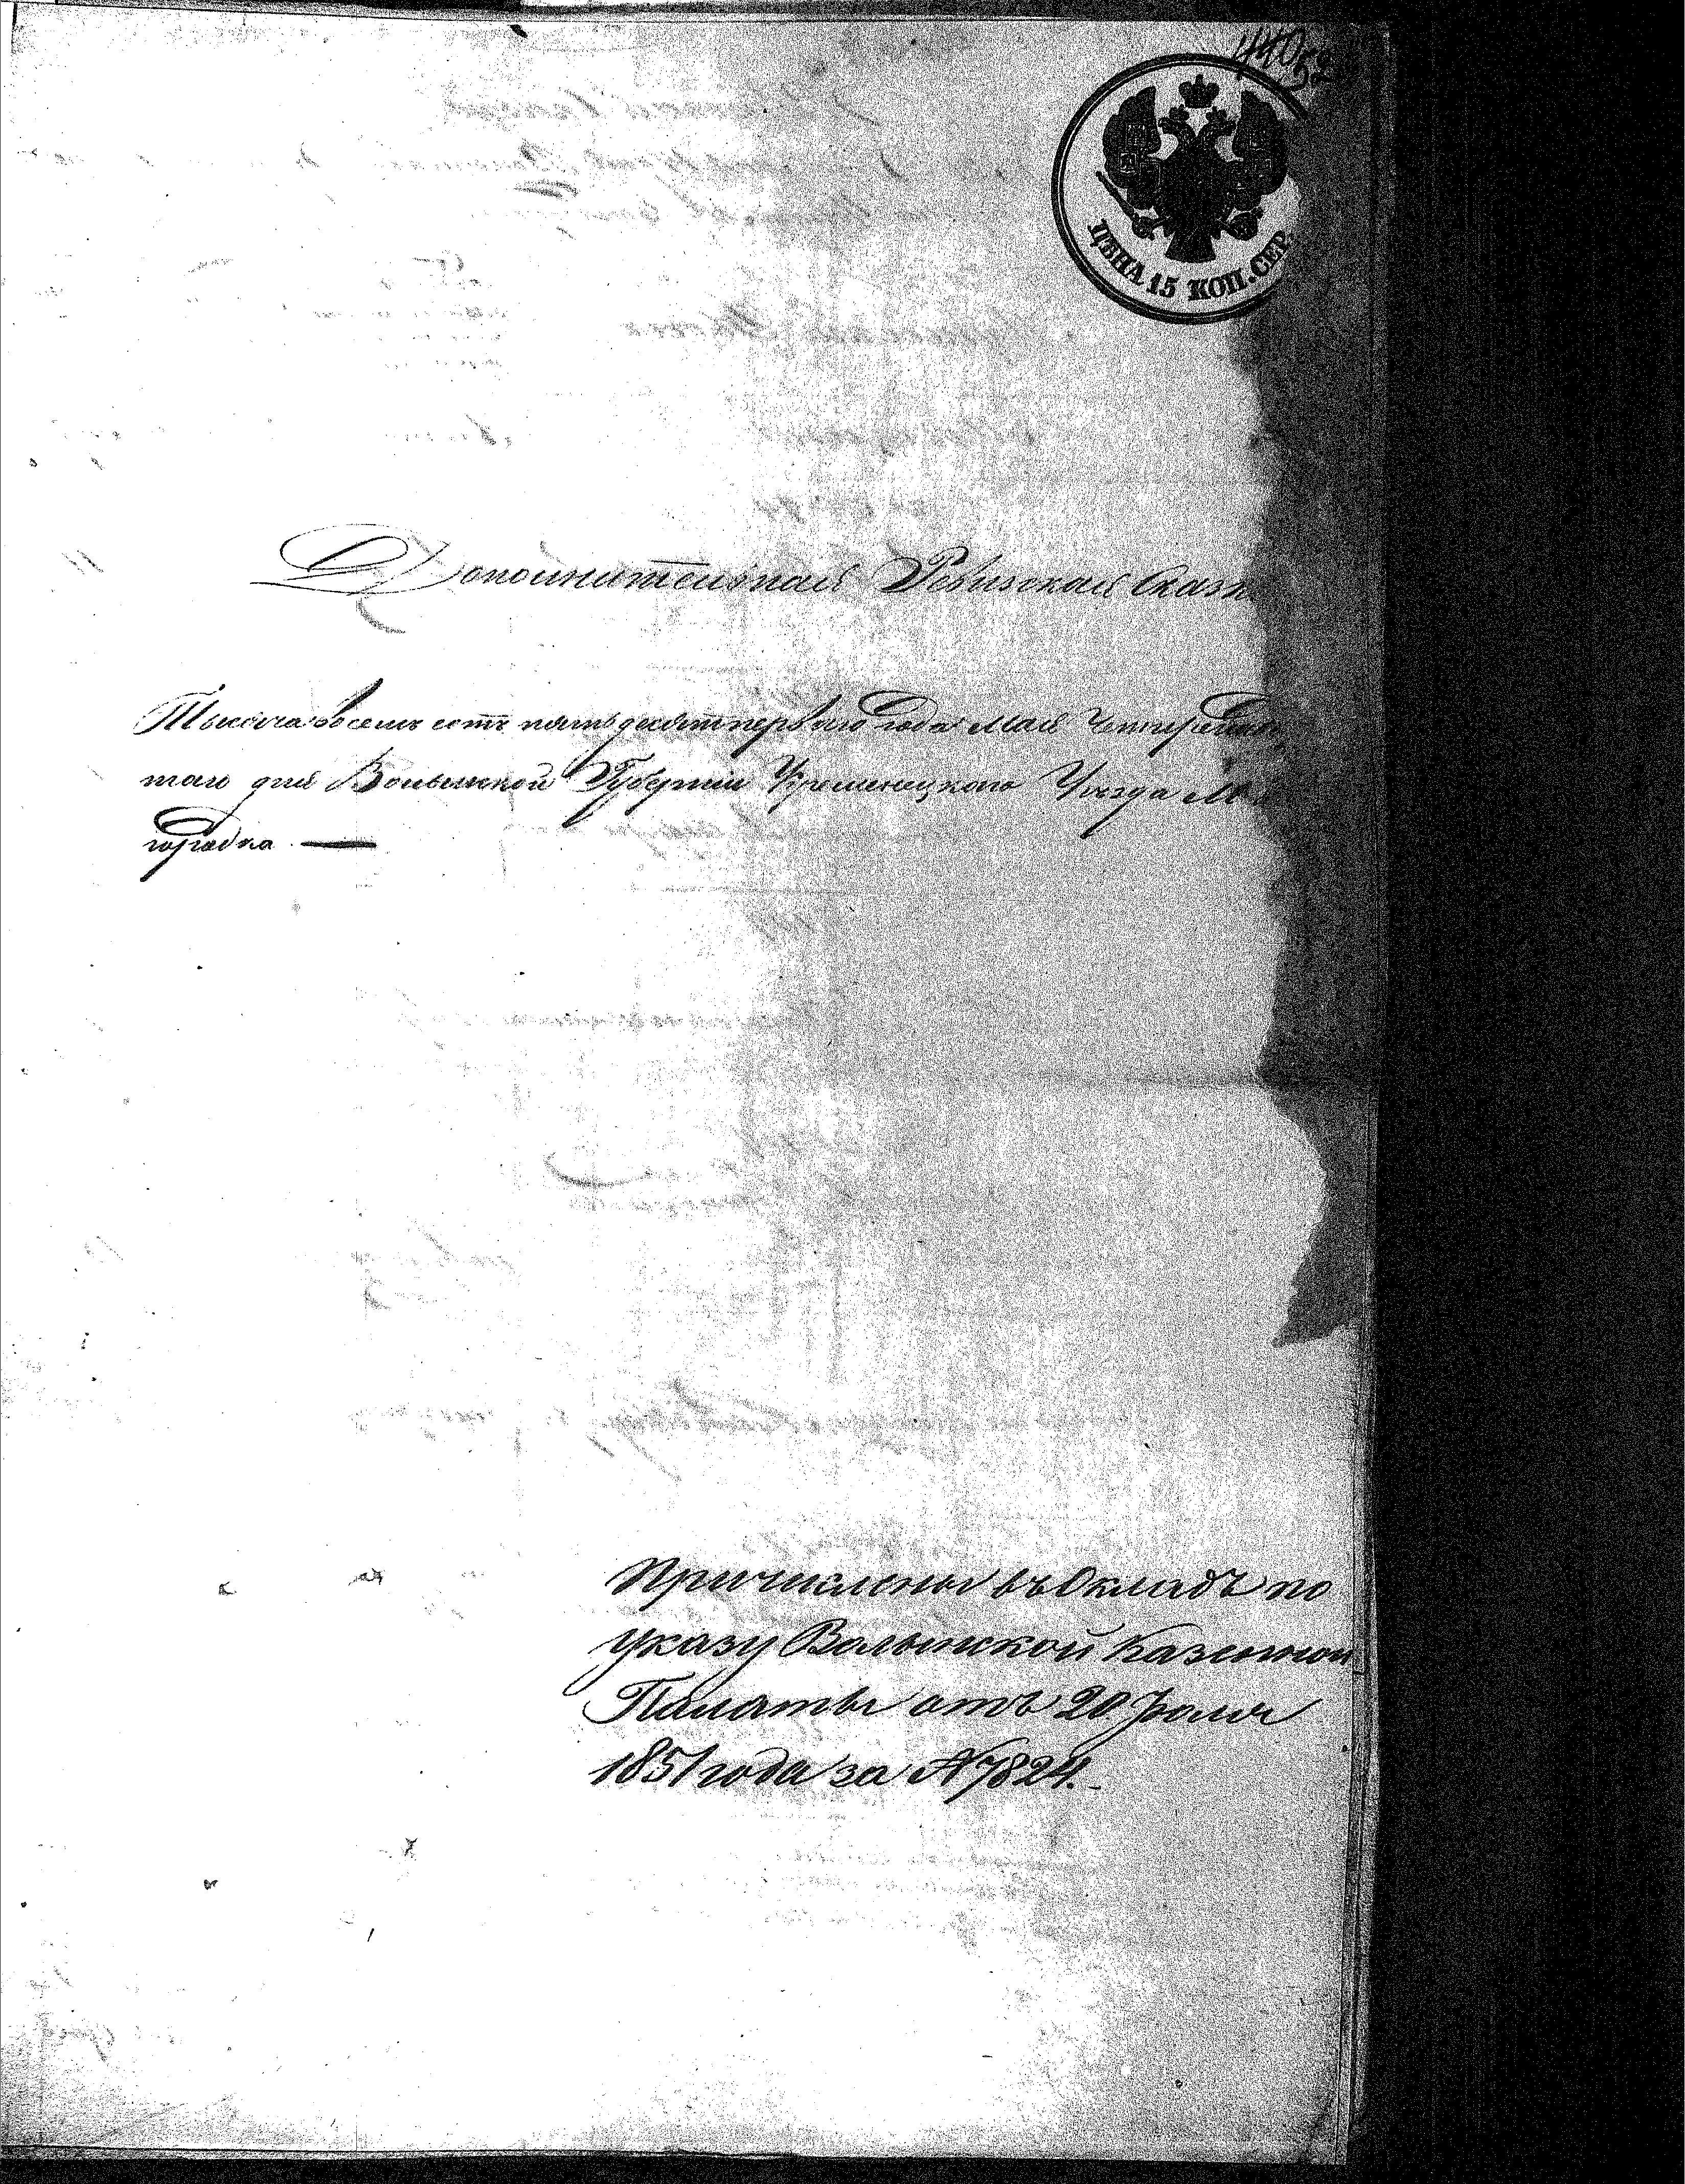 ЦѢНА 15 КОП. СЕР.
Дополнительная Ревизская Сказк
Тысяча восемь сотъ пятьдесятъ первого года Мая Четырнадца
того дня Волынской Губерніи Кременецкаго Уѣзда
городка
Причислены въ Окладъ по
указу Волынской Казенной
Палаты отъ 20 Іюля
1851 года за № 7824.